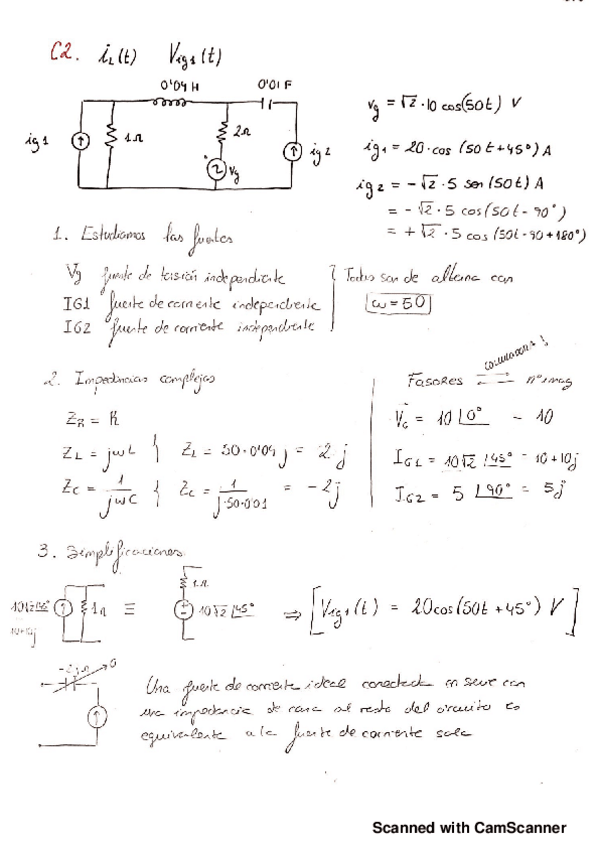 C2. i_L(t) V_ig1(t)
0'04 H 0'01 F
ig1 1Ω 2Ω Vg ig2
vg = √2 · 10 cos(50t) V
ig1 = 20 · cos (50t + 45°) A
ig2 = - √2 · 5 sen (50t) A
= - √2 · 5 cos (50t - 90°)
= + √2 · 5 cos (50t - 90 + 180°)
1. Estudiamos las fuentes
Vg fuente de tensión independiente
IG1 fuente de corriente independiente
IG2 fuente de corriente independiente
Todas son de alterna con
ω = 50
2. Impedancias complejas
Z_R = R
Z_L = jωL Z_L = 50 · 0'04 j = 2 j
Z_C = 1/jωC Z_C = 1/j·50·0'01 = -2j
Fasores ⇄ nºs imag
V_G = 10 |0° - 10
I_G1 = 10√2 |45° = 10 + 10j
I_G2 = 5 |90° = 5j
3. Simplificaciones
10√2 |45° 1Ω ≡ 1Ω 10√2 |45° ⇒ [V_ig1(t) = 20cos(50t + 45°) V]
10+10j
-2jΩ 0
Una fuente de corriente ideal conectada en serie con
una impedancia de cara al resto del circuito es
equivalente a la fuente de corriente sola
Scanned with CamScanner